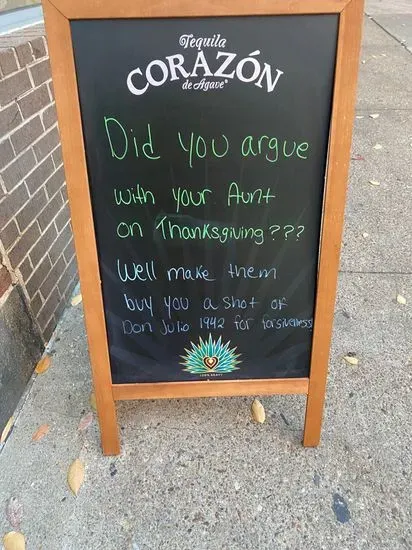 Tequila
CORAZÓN
de Agave®
Did you argue
with your Aunt
on Thanksgiving???
Well make them
buy you a shot of
Don Julio 1942 for forgiveness!
100% AGAVE